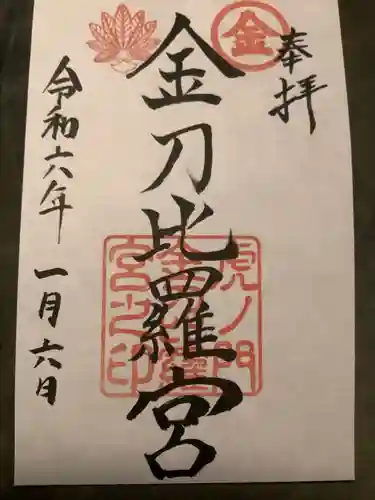 奉拝
金
金刀比羅宮
虎ノ門
金刀比羅
宮之印
令和六年
一月六日